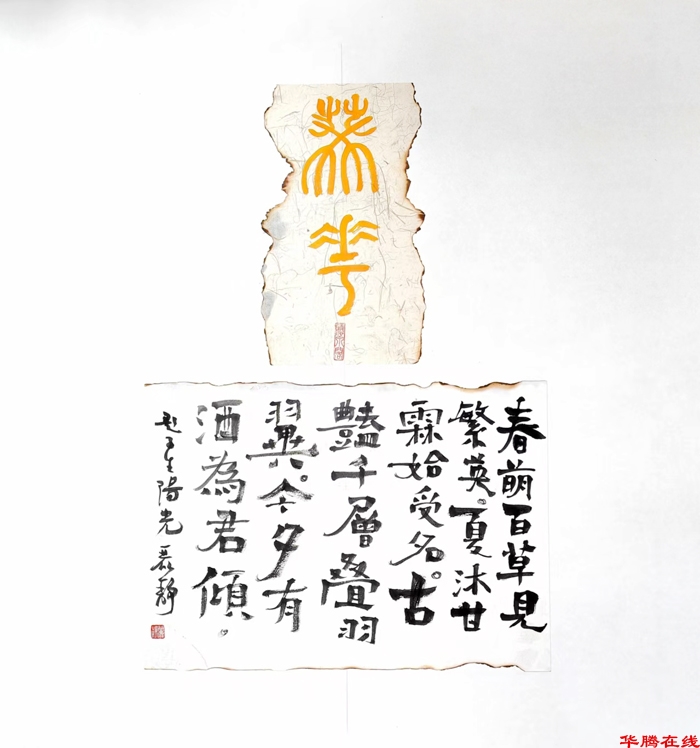 華
春萌百草見
繁英。夏沐甘
霖始受名。古
豔千層叠羽
翼。今夕有
酒為君傾。
陽光 静
华腾在线